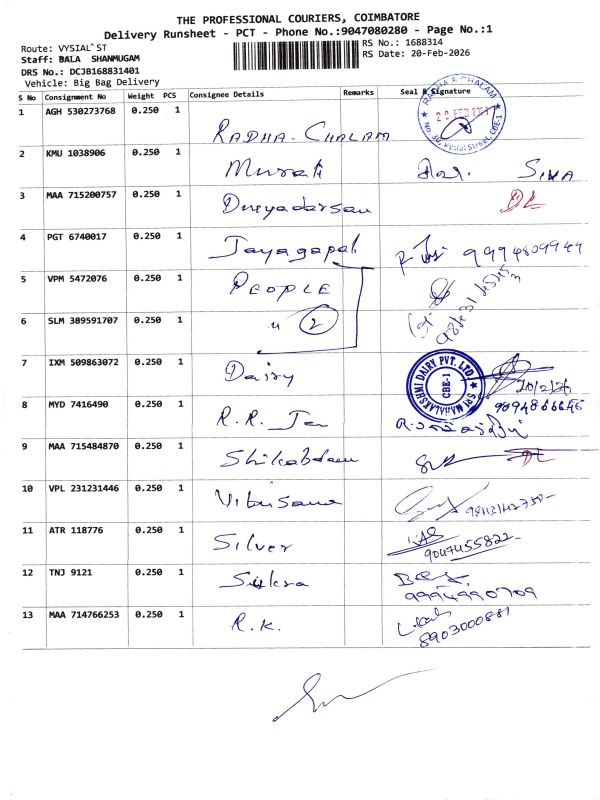 THE PROFESSIONAL COURIERS, COIMBATORE
Delivery Runsheet - PCT - Phone No.:9047080280 - Page No.:1
Route: VYSIAL ST
Staff: BALA SHANMUGAM
DRS No.: DCJB168831401
Vehicle: Big Bag Delivery
RS No.: 1688314
RS Date: 20-Feb-2026
S No Consignment No Weight PCS Consignee Details Remarks Seal & Signature
1 AGH 530273768 0.250 1 RADHA-CHALAM
RADHA CHALAM
No. 30, Vysial Street, CBE-1
2 KMU 1038906 0.250 1 Murali SIVA
3 MAA 715200757 0.250 1 DL
4 PGT 6740017 0.250 1 Jayagopal 9994809949
5 VPM 5472076 0.250 1 PEOPLE
6 SLM 389591707 0.250 1 " 2
7 IXM 509863072 0.250 1 Dairy
SRI MAHALAKSHMI DAIRY PVT. LTD
CBE-1
20/2/26
8 MYD 7416490 0.250 1 R.R. 9894866646
9 MAA 715484870 0.250 1 DL
10 VPL 231231446 0.250 1
11 ATR 118776 0.250 1 Silver 9047455822
12 TNJ 9121 0.250 1 Sukra 9994990709
13 MAA 714766253 0.250 1 R.K. 8903000881